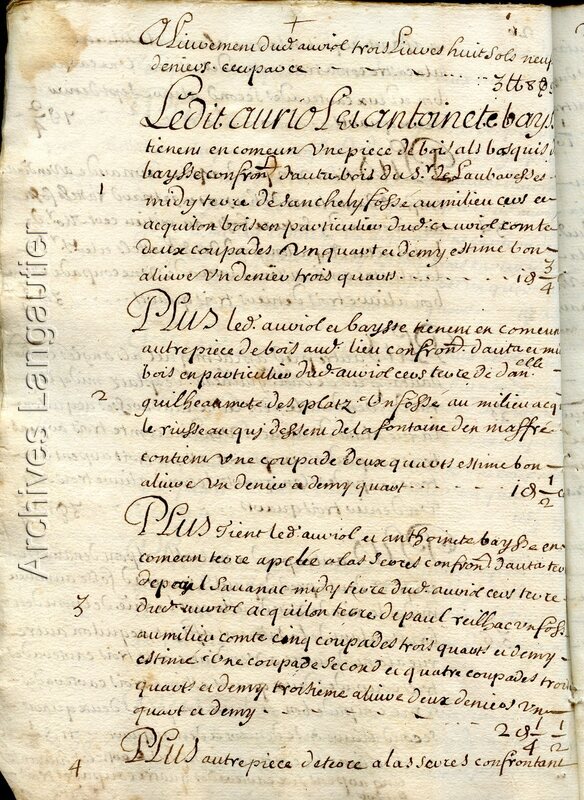 Aliurement dud. auriol trois Liures huit sols neuf
deniers
3  tt 8 s 9
Ledit auriol et antoinete bayss
tienent en comeun vne piece de bois als bosquis
baysse confron. d'auta bois du s.r de Laubaresses
1
midy terre de sanchely fosse au milieu cers et
aquilon bois en particulier dud. auriol comte
deux coupades vn quart et demy estime bon
aliure vn denier trois quarts
1 d 3/4
PLUS led. auriol et baysse tienent en comeun
autre piece de bois aud. lieu confron. d'auta et mi
bois en particulier dud. auriol cers terre de dan.elle
2
guilheaumete des platz vn fosse au milieu acq
le ruisseau qui dessent de la fontaine den maffre
contient vne coupade deux quarts estime bon
aliure vn denier et demy quart
1 d 1/2
PLUS Tient led. auriol et anthoinete baysse en
comeun terre apelée a las serres confron. d'auta terre
savanac midy terre dud. auriol cers terre
3
dud. auriol acquilon terre de paul reilhac vn foss
au milieu comte cinq coupades trois quarts et demy
estime vne coupade second et quatre coupades trois
quarts et demy troisieme aliure deux deniers vn
quart et demy
2 d 1/4 1/2
4
PLUS autre piece de terre a las serres confrontant
Archives Langautier